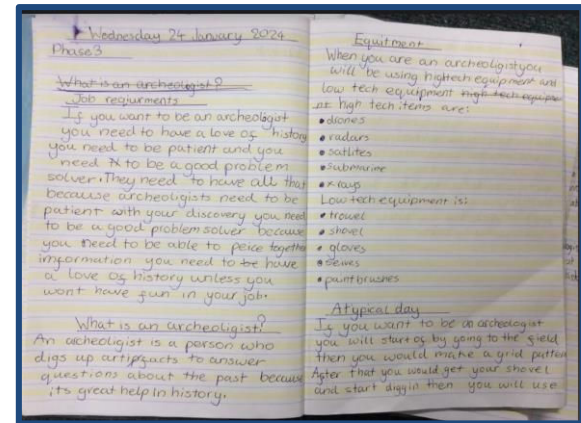 Wednesday 24 January 2024
Phase 3
What is an archeoligist?
Job reqiurments
If you want to be an archeoligist
you need to have a love of history
you need to be patient and you
need to be a good problem
solver. They need to have all that
because archeoligists need to be
patient with your discovery you need
to be a good problem solver because
you need to be able to peice together
imformation you need to be have
a love of history unless you
wont have fun in your job.
What is an archeoligist?
An archeologist is a person who
digs up artifacts to answer
questions about the past because
its great help In history.
Equitment
When you are an archeoligist you
will be using hightech equipment and
low tech equipment high tech equipme
nt high tech items are:
• drones
• radars
• satlites
• submarine
• x-rays
Low tech equipment is:
• trowel
• shovel
• gloves
• seives
• paintbrushes
A typical day
If you want to be an archeologist
you will start of by going to the field
then you would make a grid patten
After that you would get your shovel
and start diggin then you will use